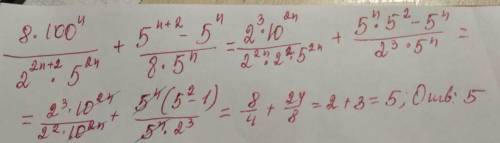 8·100ⁿ/(2²ⁿ⁺²·5²ⁿ) + (5ⁿ⁺²-5ⁿ)/(8·5ⁿ) = 2³·10²ⁿ/(2²ⁿ·2²·5²ⁿ) + (5ⁿ·5²-5ⁿ)/(2³·5ⁿ) =
= 2³·10²ⁿ/(2²·10²ⁿ) + 5ⁿ(5²-1)/(5ⁿ·2³) = 8/4 + 24/8 = 2+3=5; Отв: 5